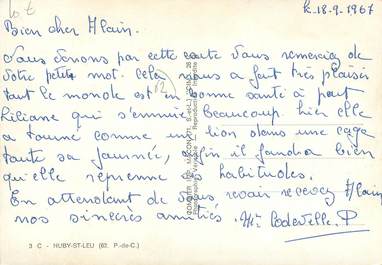 le 18.9.1967
Bien cher Alain.
Nous venons par cette carte vous remercier de
votre petit mot. Cela nous a fait très plaisir
tout le monde est en bonne santé à part
Liliane qui s'ennuie Beaucoup. hier elle
a tourné comme un lion dans une cage
toute sa journée, enfin il faudra bien
qu'elle reprenne ses habitudes.
En attendant de vous revoir recevez Alain
nos sincères amitiés. P
3 C - HUBY-ST-LEU (62. P.-de-C.)